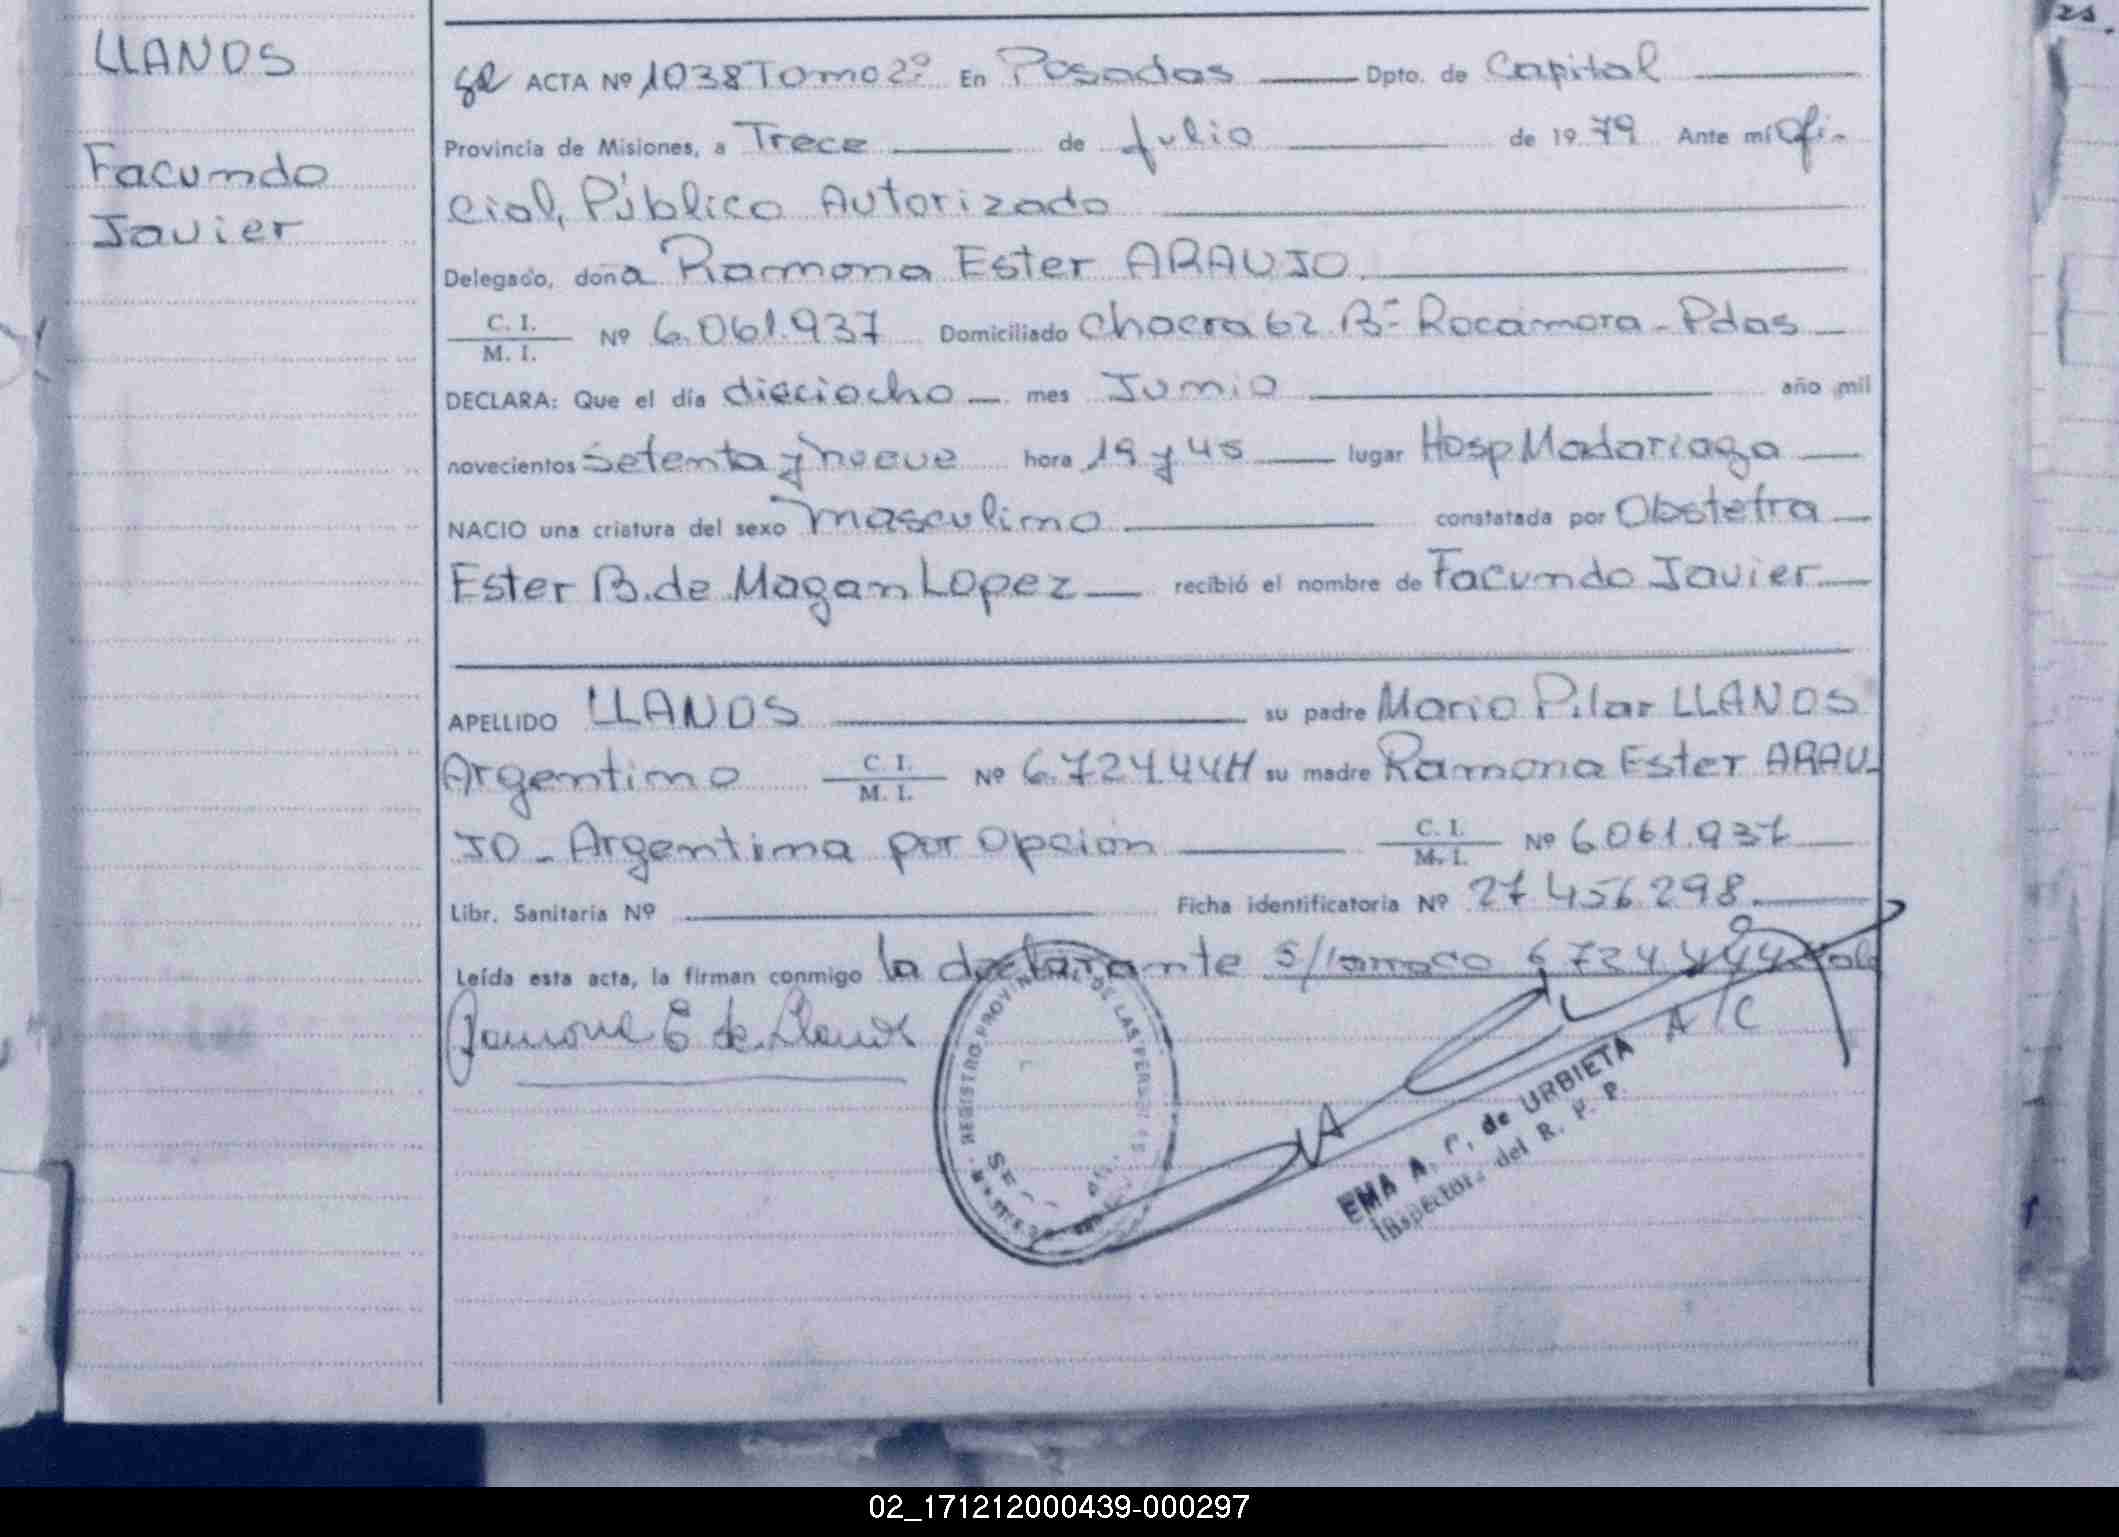 21.
LLANOS
Facundo
Javier
ACTA Nº 1038 Tomo 2º En Posadas Dpto. de Capital
Provincia de Misiones, a Trece de Julio de 1979 Ante mí Ofi-
cial, Público Autorizado
Delegado, doña Ramona Ester ARAUJO.
C. I.
M. I.
Nº 6.061.937 Domiciliado Chacra 62 Bº Rocamora - Pdas
DECLARA: Que el día dieciocho mes Junio año mil
novecientos setenta y nueve hora 19 y 45 lugar Hosp Madariaga
NACIO una criatura del sexo masculino constatada por Obstetra
Ester B. de Magan Lopez recibió el nombre de Facundo Javier
APELLIDO LLANOS su padre Mario Pilar LLANOS
Argentino C. I.
M. I.
Nº 6.724.444 su madre Ramona Ester ARAU-
JO - Argentina por Opción C. I.
M. I.
Nº 6.061.937
Libr. Sanitaria Nº Ficha identificatoria Nº 27.456.298
Leída esta acta, la firman conmigo la declarante 6.724.444 vale
Ramona E de Llanos
REGISTRO PROVINCIAL DE LAS PERSONAS
A/C
EMA A. de URBIETA
Inspectora del R. P. P.
02_171212000439-000297